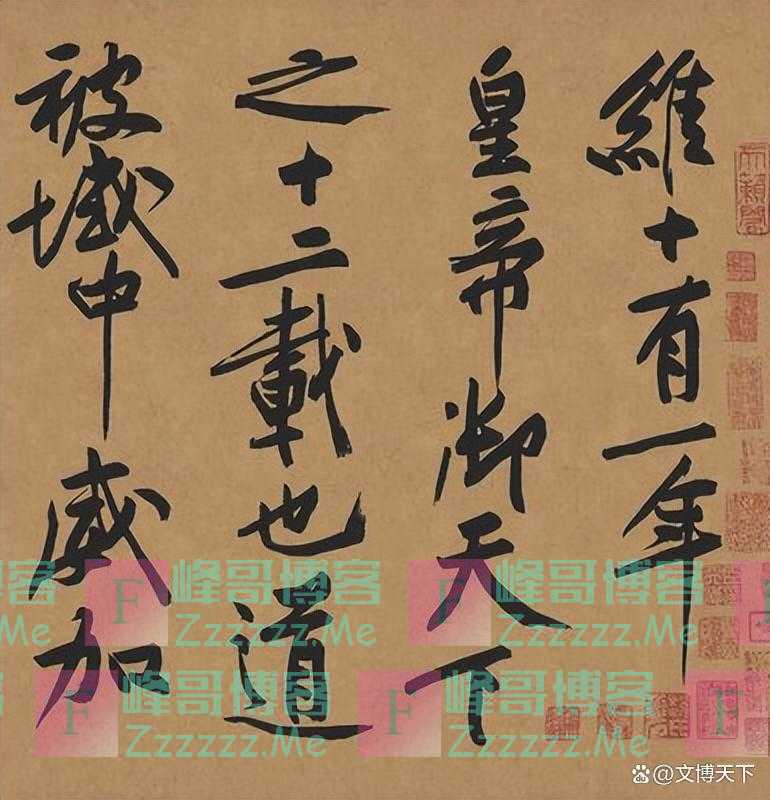 維十有一年
皇帝御天下
之十二載也道
被域中威加
天籟閣
峰哥博客
Zzzzzz.Me
峰哥博客
Zzzzzz.Me
峰哥博客
Zzzzzz.Me
峰哥博客
Zzzzzz.Me
F
F
F
F
F
@文博天下